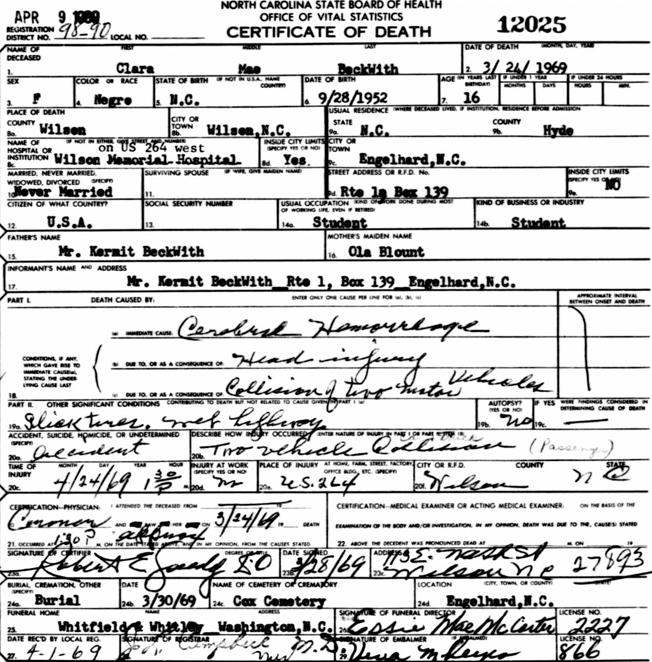 NORTH CAROLINA STATE BOARD OF HEALTH
OFFICE OF VITAL STATISTICS
CERTIFICATE OF DEATH
12025
APR 9 1969
REGISTRATION DISTRICT NO. 98-90 LOCAL NO.
NAME OF DECEASED FIRST MIDDLE LAST DATE OF DEATH (MONTH, DAY, YEAR)
1. Clara Mae BeckWith 2. 3/ 24/ 1969
SEX COLOR OR RACE STATE OF BIRTH (IF NOT IN U.S.A. NAME COUNTRY) DATE OF BIRTH AGE (IN YEARS LAST BIRTHDAY) IF UNDER 1 YEAR MONTHS DAYS IF UNDER 24 HOURS HOURS MIN.
3. F 4. Negro 5. N.C. 6. 9/28/1952 7. 16
PLACE OF DEATH COUNTY CITY OR TOWN USUAL RESIDENCE (WHERE DECEASED LIVED, IF INSTITUTION, RESIDENCE BEFORE ADMISSION) STATE COUNTY
8a. Wilson 8b. Wilson,N.C. 9a. N.C. 9b. Hyde
NAME OF HOSPITAL OR INSTITUTION (IF NOT IN EITHER, GIVE STREET AND NUMBER) INSIDE CITY LIMITS (SPECIFY YES OR NO) CITY OR TOWN
on US 264 west
8c. Wilson Memorial Hospital 8d. Yes. 9c. Engelhard,N.C.
MARRIED, NEVER MARRIED, WIDOWED, DIVORCED (SPECIFY) SURVIVING SPOUSE (IF WIFE, GIVE MAIDEN NAME) STREET ADDRESS OR R.F.D. NO. INSIDE CITY LIMITS (SPECIFY YES OR NO)
10. Never Married 11. 9d. Rte 1a Box 139 9e. NO
CITIZEN OF WHAT COUNTRY? SOCIAL SECURITY NUMBER USUAL OCCUPATION (KIND OF WORK DONE DURING MOST OF WORKING LIFE, EVEN IF RETIRED) KIND OF BUSINESS OR INDUSTRY
12. U.S.A. 13. 14a. Student 14b. Student
FATHER'S NAME MOTHER'S MAIDEN NAME
15. Mr. Kermit BeckWith 16. Ola Blount
INFORMANT'S NAME AND ADDRESS
17. Mr. Kermit BeckWith Rte 1, Box 139 Engelhard,N.C.
PART I. DEATH CAUSED BY: ENTER ONLY ONE CAUSE PER LINE FOR (a), (b), (c) APPROXIMATE INTERVAL BETWEEN ONSET AND DEATH
(a) IMMEDIATE CAUSE Cerebral Hemorrhage
CONDITIONS, IF ANY, WHICH GAVE RISE TO IMMEDIATE CAUSE(a), STATING THE UNDERLYING CAUSE LAST
(b) DUE TO, OR AS A CONSEQUENCE OF: Head injury
18. (c) DUE TO, OR AS A CONSEQUENCE OF: Collision of two motor Vehicles
PART II. OTHER SIGNIFICANT CONDITIONS CONTRIBUTING TO DEATH BUT NOT RELATED TO CAUSE GIVEN IN PART I (a) AUTOPSY? (YES OR NO) IF YES WERE FINDINGS CONSIDERED IN DETERMINING CAUSE OF DEATH
19a. Slick tires, wet highway 19b. No 19c. —
ACCIDENT, SUICIDE, HOMICIDE, OR UNDETERMINED (SPECIFY) DESCRIBE HOW INJURY OCCURRED (ENTER NATURE OF INJURY IN PART I OR PART II, ITEM 18)
20a. accident 20b. Two vehicle Collision (Passenger)
TIME OF INJURY MONTH DAY YEAR HOUR INJURY AT WORK (SPECIFY YES OR NO) PLACE OF INJURY AT HOME, FARM, STREET, FACTORY, OFFICE BLDG., ETC. (SPECIFY) CITY OR R.F.D. COUNTY STATE
20c. 4/24/69 1 30 P 20d. 20e. U.S. 264 20f. Wilson N C
CERTIFICATION—PHYSICIAN: I ATTENDED THE DECEASED FROM CERTIFICATION—MEDICAL EXAMINER OR ACTING MEDICAL EXAMINER: ON THE BASIS OF THE
Coroner 3/24/69 DEATH EXAMINATION OF THE BODY AND/OR INVESTIGATION, IN MY OPINION, DEATH WAS DUE TO THE, CAUSE(S) STATED
21. OCCURRED AT 1:30 P M. ON THE DATE STATED ABOVE AND, IN MY OPINION, FROM THE CAUSES STATED 22. ABOVE THE DECEDENT WAS PRONOUNCED DEAD AT
SIGNATURE OF CERTIFIER DEGREE OR TITLE DATE SIGNED ADDRESS
23a. Robert E. 23b. 3/28/69 23c. 113 E. Nash St
Wilson NC 27893
BURIAL, CREMATION, OTHER (SPECIFY) DATE NAME OF CEMETERY OR CREMATORY LOCATION (CITY, TOWN, OR COUNTY) (STATE)
24a. Burial 24b. 3/30/69 24c. Cox Cemetery 24d. Engelhard,N.C.
FUNERAL HOME NAME ADDRESS SIGNATURE OF FUNERAL DIRECTOR LICENSE NO.
25. Whitfield & Whitley Washington,N.C. 26. Essie Mae McCarter 2227
DATE REC'D BY LOCAL REG. SIGNATURE OF REGISTRAR SIGNATURE OF EMBALMER LICENSE NO.
27. 4-1-69 866